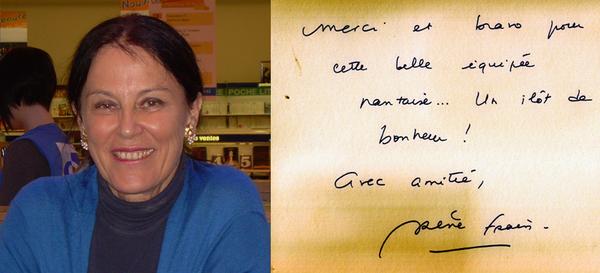 Nouv
POCHE LIT
ventes
Merci et bravo pour
cette belle équipée
nantaise... Un îlôt de
bonheur !
Avec amitié,
Irène Frain.